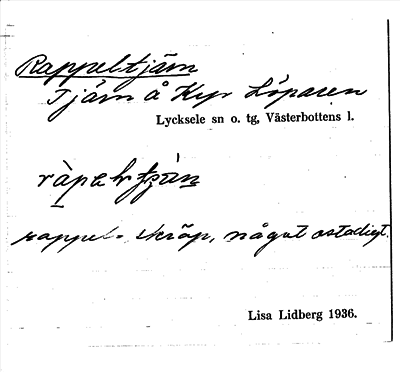 Rappeltjärn
Tjärn å Kyr Löparen
Lycksele sn o. tg, Västerbottens l.
ràpel
rappel = skräp, något ostadigt.
Lisa Lidberg 1936.